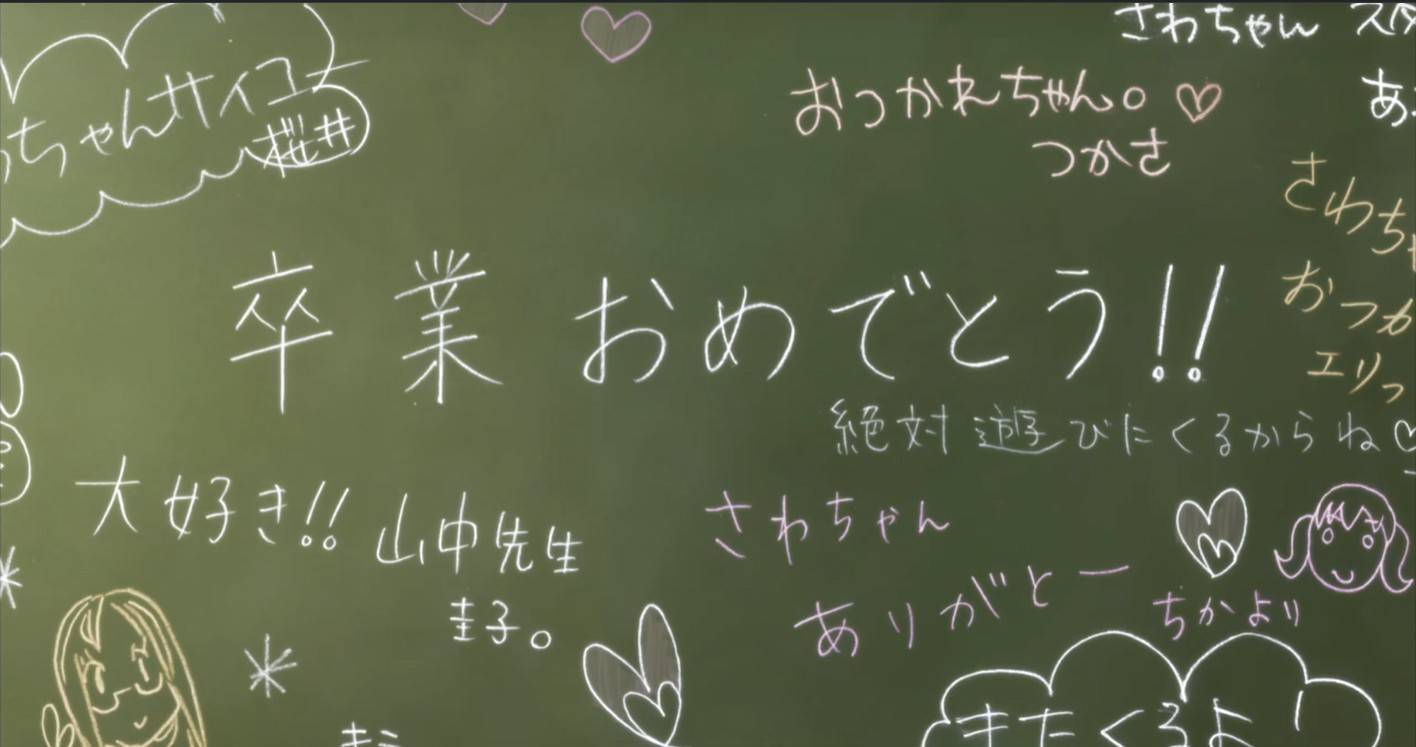 さわちゃん
ちゃんサイコー
桜井
おつかれちゃん。
つかさ
さわちゃ
おつか
エリっ
卒業おめでとう!!
絶対遊びにくるからね
大好き!!山中先生
圭子。
さわちゃん
ありがとー
ちかより
またくるよ!